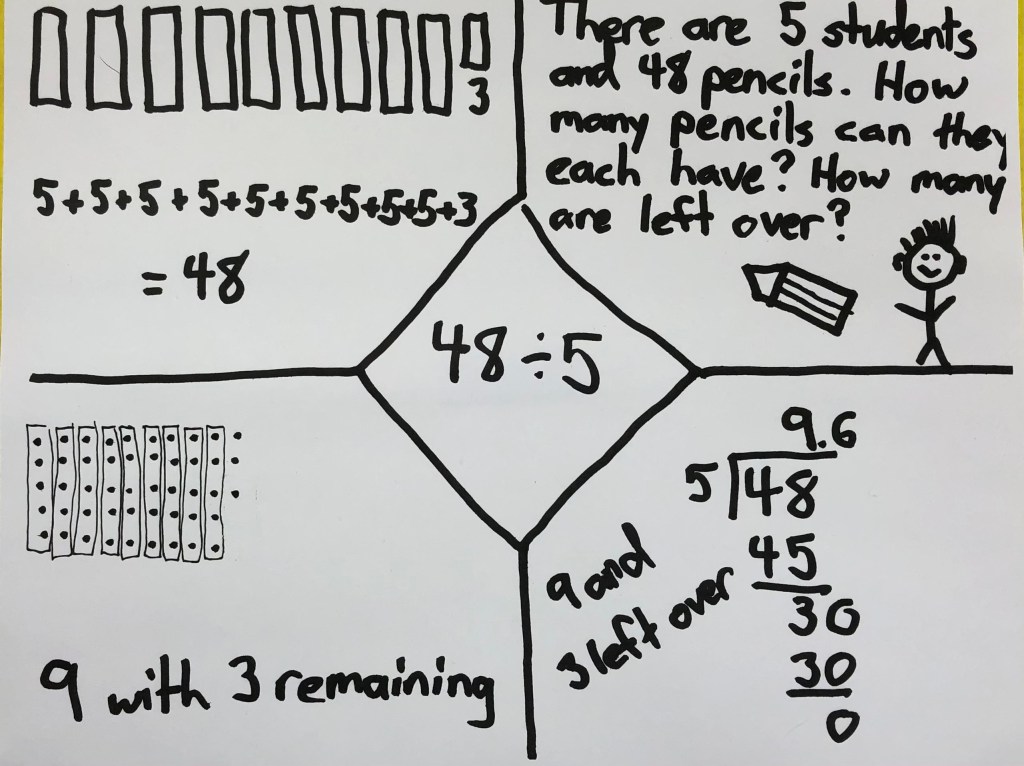 3
5+5+5+5+5+5+5+5+5+3
= 48
There are 5 students
and 48 pencils. How
many pencils can they
each have? How many
are left over?
48÷5
9 with 3 remaining
9 and
3 left over
9.6
5 48
45
30
30
0